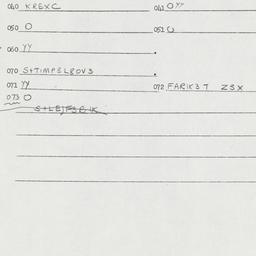 040 KREXC 041 O YY
050 O 051 O
060 YY
070 S+TIMPELROVS
071 YY 072 FARIK3T ZSX
073 O